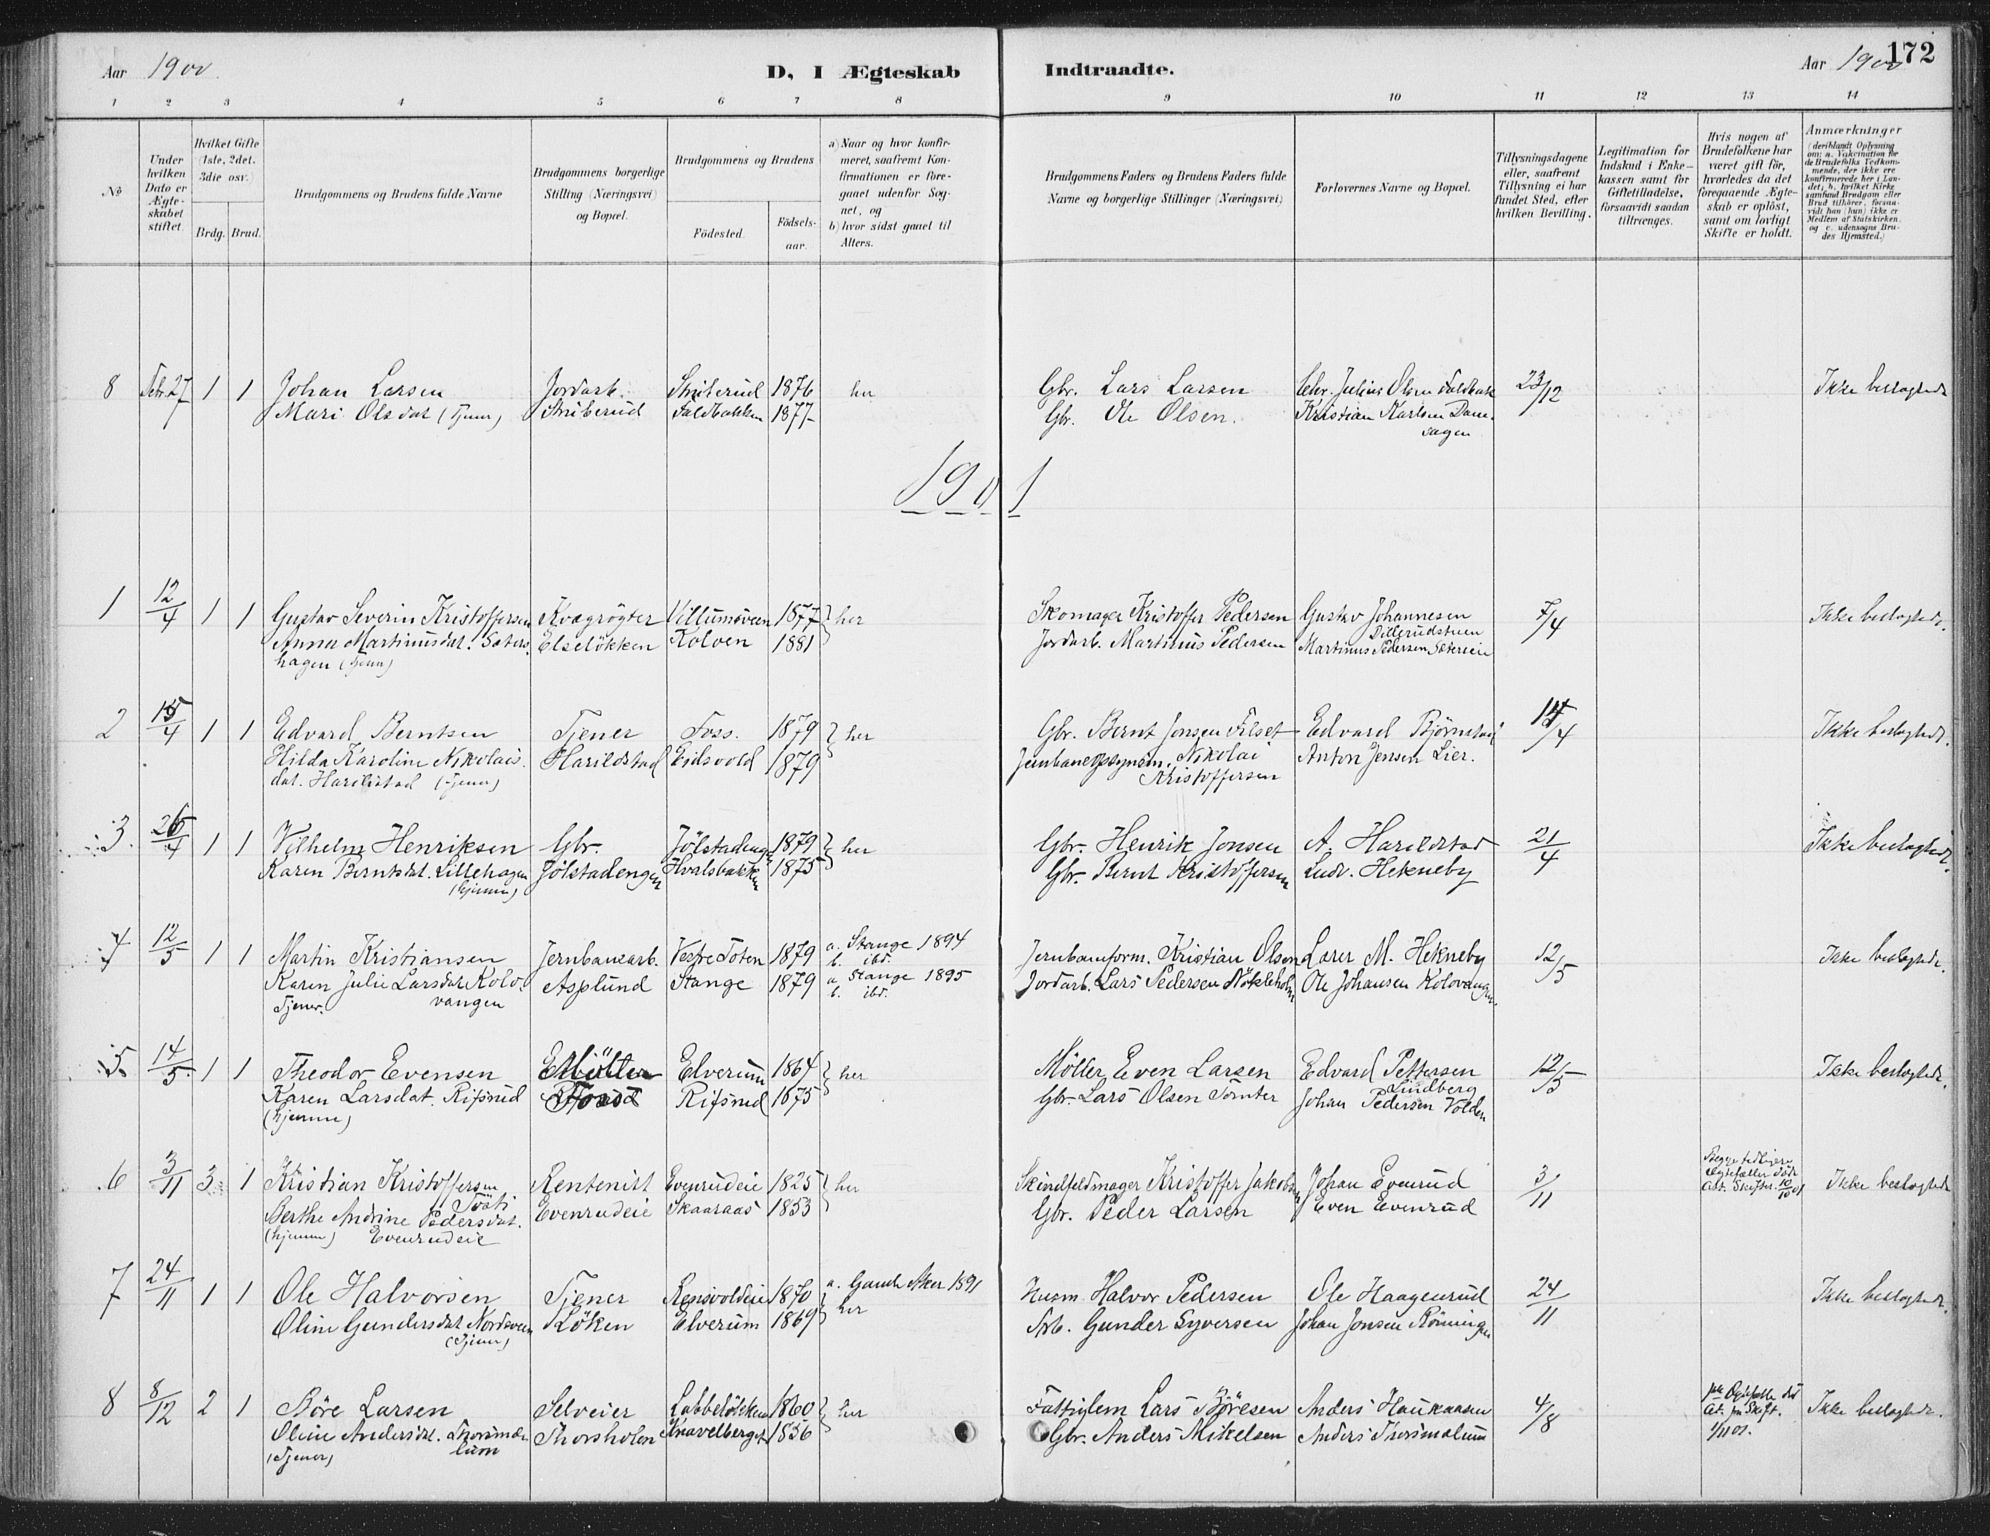 Aar 1900
D, I Ægteskab Indtraadte.
Aar 1900 172
1 2 3 4 5 6 7 8 9 10 11 12 13 14
No
Under hvilken Dato er Ægteskabet stiftet.
Hvilket Gifte (1ste, 2det, 3die osv.)
Brdg. Brud.
Brudgommens og Brudens fulde Navne
Brudgommens borgerlige Stilling (Næringsvei) og Bopæl.
Brudgommens og Brudens
Födested.
Födselsaar.
a) Naar og hvor konfirmeret, saafremt Konfirmationen er foregaaet udenfor Sognet, og
b) hvor sidst gaaet til Alters.
Brudgommens Faders og Brudens Faders fulde Navne og borgerlige Stillinger (Næringsvei)
Forlovernes Navne og Bopæl.
Tillysningsdagene eller, saafremt Tillysning ei har fundet Sted, efter hvilken Bevilling.
Legitimation for Indskud i Enkekassen samt for Giftetilladelse, forsaavidt saadan tiltrænges.
Hvis nogen af Brudefolkene har været gift för, hvorledes da det foregaaende Ægteskab er oplöst, samt om lovligt Skifte er holdt.
Anmærkninger (deriblandt Oplysning om: a. Vakcination for de Brudefolks Vedkommende, der ikke ere konfirmerede her i Landet; b. hvilket Kirkesamfund Brudgom eller Brud tilhörer, forsaavidt han (hun) ikke er Medlem af Statskirken, og c. udensogns Brudes Hjemsted.)
8 Febr. 27 1 1 Johan Larsen Jordarb. Struberud 1876 her Gbr. Lars Larsen Chr. Julius Olsen Faldbak 23/12 Ikke beslægtede
Mari Olsdat (Tjener) Struberud Faldbakken 1877 Gbr. Ole Olsen. Kristian Karlsen Damsagen
1901
1 12/4 1 1 Gustav Severin Kristoffersen Kvægrögter Villumsveen 1877 her Skomager Kristoffer Pedersen Gustav Johannesen Dillerudstuen 7/4 Ikke beslægtede.
Anna Martinusdat. Sætershagen (Tjener) Elselökken Kolven 1881 Jordarb. Martinus Pedersen Martinus Pedersen Sætereie
2 15/4 1 1 Edvard Berntsen Tjener Foss. 1879 her Gbr. Bernt Jonsen Filset Edvard Bjørnstad 14/4 Ikke beslægtede.
Hilda Karoline Nikolaisdat. Harildstad (Tjener) Harildstad Eidsvold 1879 Jernbaneopsynsm. Nikolai Kristoffersen Anton Jensen Lier.
3. 26/4 1 1 Vilhelm Henriksen Gbr. Jølstadengen 1879 her Gbr. Henrik Jonsen A. Harildstad 21/4 Ikke beslægtede.
Karen Berntsdt. Lillehagen (hjemme) Jølstadengen Hvalsbakken 1875 Gbr. Bernt Kristoffersen Ludv. Hekneby
4 12/5 1 1 Martin Kristiansen Jernbanearb. Vestre Toten 1879 a. Stange 1894 b. ibd. Jernbaneform. Kristian Olsen Lærer M. Hekneby 12/5 Ikke beslægtede.
Karen Julie Larsdat. Kolovangen Tjener. Asplund Stange 1879 a. Stange 1895 b. ibd. Jordarb. Lars Pedersen Nökleholm Ole Johansen Kolovangen.
5. 14/5 1 1 Theodor Evensen Møller Elverum 1864 her Möller Even Larsen Edvard Pettersen Lindberg 12/5 Ikke beslægtede.
Karen Larsdat. Rifsrud (hjemme) Rifsrud 1875 Gbr. Lars Olsen Tomter Johan Pedersen Volden
6 3/11 3 1 Kristian Kristoffersen Rentenist Evenrudeie 1825 her Skindfeldmager Kristoffer Jakobsen Johan Evenrud 3/11 Begge tidligere Ægtefæller döde Att. Skifter. 10/10 01 Ikke beslægtede
Berthe Andrine Pedersdat. (hjemme) Evenrudeie Evenrudeie Skaaraas 1853 Gbr. Peder Larsen Even Evenrud
7 24/11 1 1 Ole Halvorsen Tjener Rensvoldeie 1870 a. Gamle Aker 1891 her Husm. Halvor Pedersen Ole Haagenrud 24/11 Ikke beslægtede.
Oline Gundersdat Nordsveen (Tjener) Löken Elverum 1869 Arb. Gunder Syversen Johan Jonsen Rönningen
8 8/12 2 1 Böre Larsen Selveier Labbelökken 1860 her Fattiglem Lars Böresen Anders Haukaasen 4/8 Att. fra Skift. 1/11 01. Ikke beslægtede.
Oline Andersdt. Thorsmælum (Tjener) Thorsholen Knavelberget 1856 Gbr. Anders Mikelsen Anders Thorsmælum